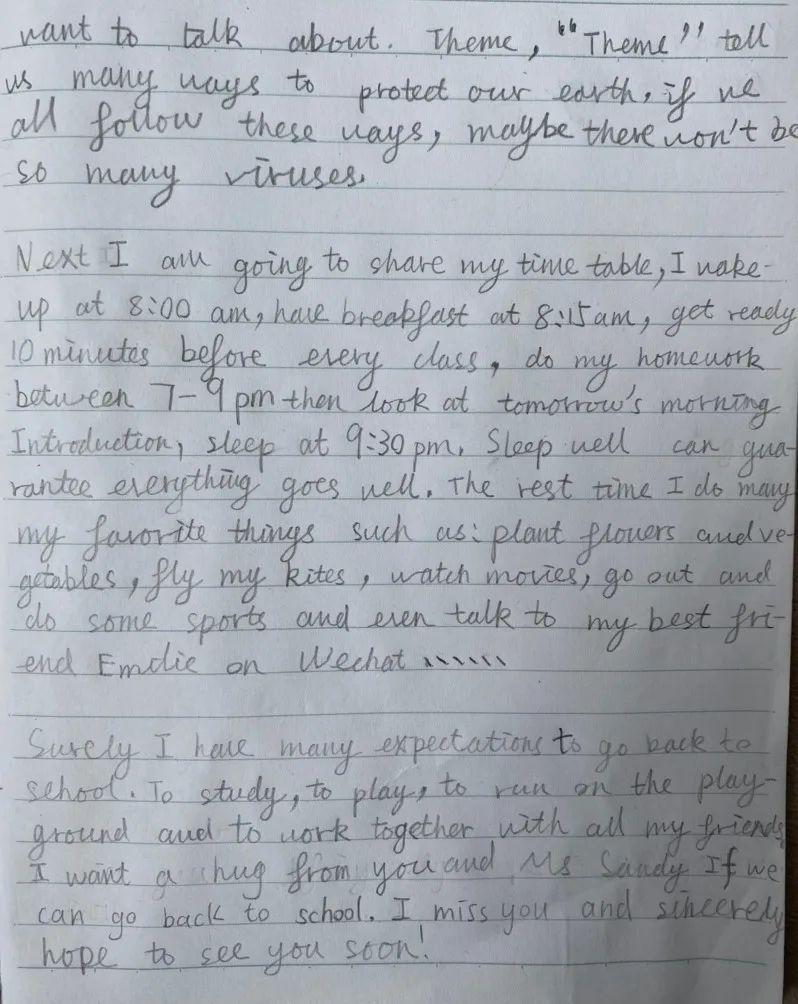 want to talk about. Theme, "Theme" tell
us many ways to protect our earth, if we
all follow these ways, maybe there won't be
so many viruses.
Next I am going to share my time table, I wake-
up at 8:00 am, have breakfast at 8:15 am, get ready
10 minutes before every class, do my homework
between 7-9 pm then look at tomorrow's morning
Introduction, sleep at 9:30 pm. Sleep well can gua-
rantee everything goes well. The rest time I do many
my favorite things such as: plant flowers and ve-
getables, fly my kites, watch movies, go out and
do some sports and even talk to my best fri-
end on Wechat ......
Surely I have many expectations to go back to
school. To study, to play, to run on the play-
ground and to work together with all my friends
I want a hug from you and Ms Sandy If we
can go back to school. I miss you and sincerely
hope to see you soon!